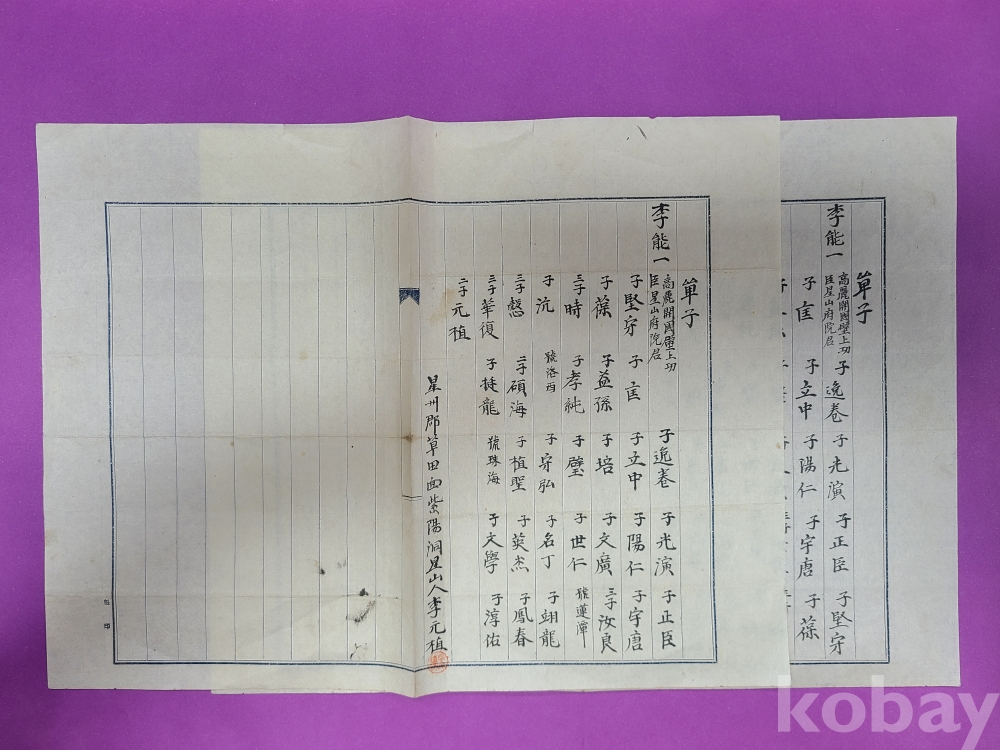 單子
李能一 高麗開國壁上功臣星山府院君 子逸巻 子光演 子正臣
子堅守 子匡 子立中 子陽仁 子宇唐
子葆 子益孫 子培 子文廣 三子汝良
三子時 子孝純 子璧 子世仁 號蓮潭
子沆 號洛西 子守弘 子名丁 子翊龍
三子慤 二子碩海 子植聖 子英杰 子鳳春
三子華復 子挺龍 號珠海 子文學 子淳佑
二子元植
星州郡草田面紫陽洞星山人李元植
單子
李能一 高麗開國壁上功臣星山府院君 子逸巻 子光演 子正臣 子堅守
子匡 子立中 子陽仁 子宇唐 子葆
kobay